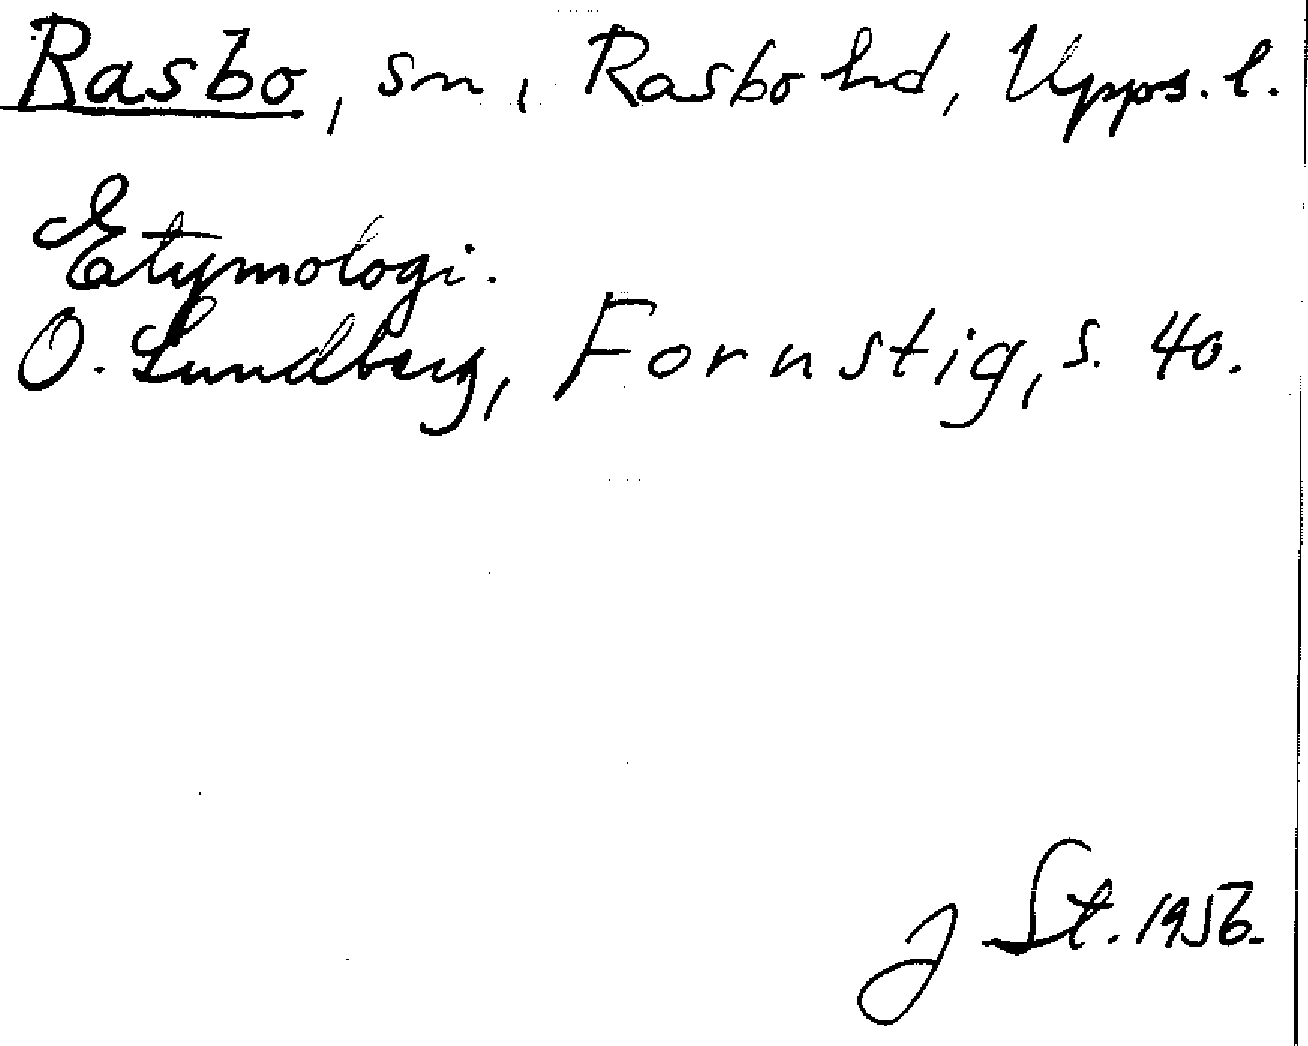 Rasbo, sn, Rasbo hd, Upps. l.
Etymologi.
O. Lundberg, Fornstig, s. 40.
J St. 1956.